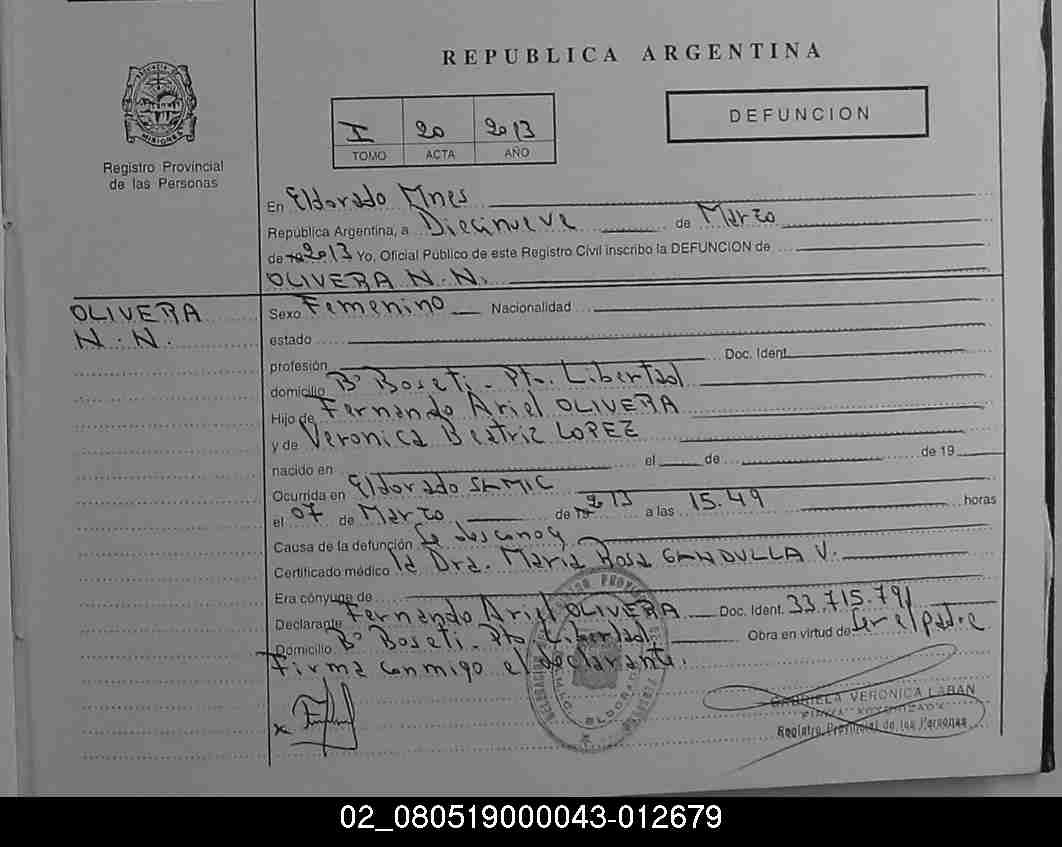 REPUBLICA ARGENTINA
DEFUNCION
I 20 2013
TOMO ACTA AÑO
MISIONES
Registro Provincial
de las Personas
En Eldorado Mnes
República Argentina, a Diecinueve de Marzo
de 19 2013 Yo, Oficial Público de este Registro Civil inscribo la DEFUNCION de
OLIVERA N.N.
OLIVERA
N.N.
Sexo Femenino Nacionalidad
estado
profesión Doc. Ident.
domicilio Bº Boseti - Pto. Libertad
Hijo de Fernando Ariel OLIVERA
y de Veronica Beatriz LOPEZ
nacido en el de de 19
Ocurrida en Eldorado SAMIC
el 07 de Marzo de 19 2013 a las 15.49 horas
Causa de la defunción Se
Certificado médico la Dra. Maria Rosa GANDULLA V.
Era cónyuge de
Declarante Fernando Ariel OLIVERA Doc. Ident. 33.715.791
Domicilio Bº Boseti. Pto Libertad Obra en virtud de Ser el padre
Firma conmigo el declarante.
x
GABRIELA VERONICA LABAN
FIRMA AUTORIZADA
Registro Provincial de las Personas
ELDORADO
02_080519000043-012679